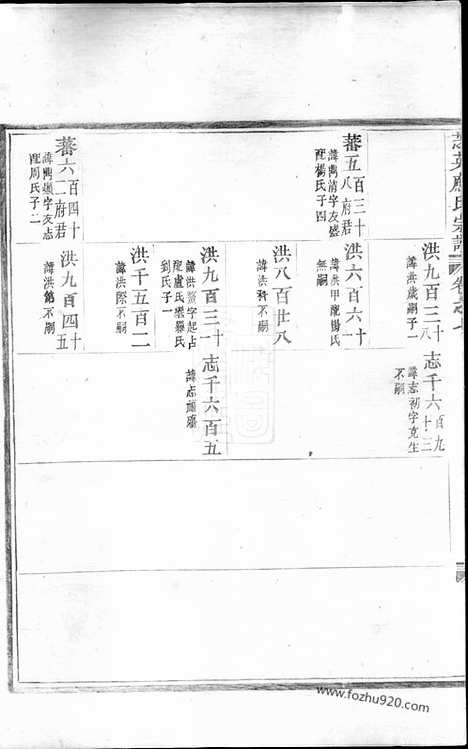 英應氏宗譜
卷之七
洪九百三十八
諱洪歲嗣子一
志千六百九十三
諱志初字克生
不嗣
蕃五百三十八府君
諱興清字友盛
配楊氏子四
洪六百六十
諱洪甲配楊氏
無嗣
洪八百廿八
諱洪科不嗣
洪九百三十一
諱洪鰲字起占
配盧氏繼羅氏
劉氏子一
志千六百五
諱志
洪千五百二
諱洪際不嗣
蕃六百四十二府君
諱興 字友志
配周氏子二
洪九百四十五
諱洪 不嗣
www.fozhu920.com